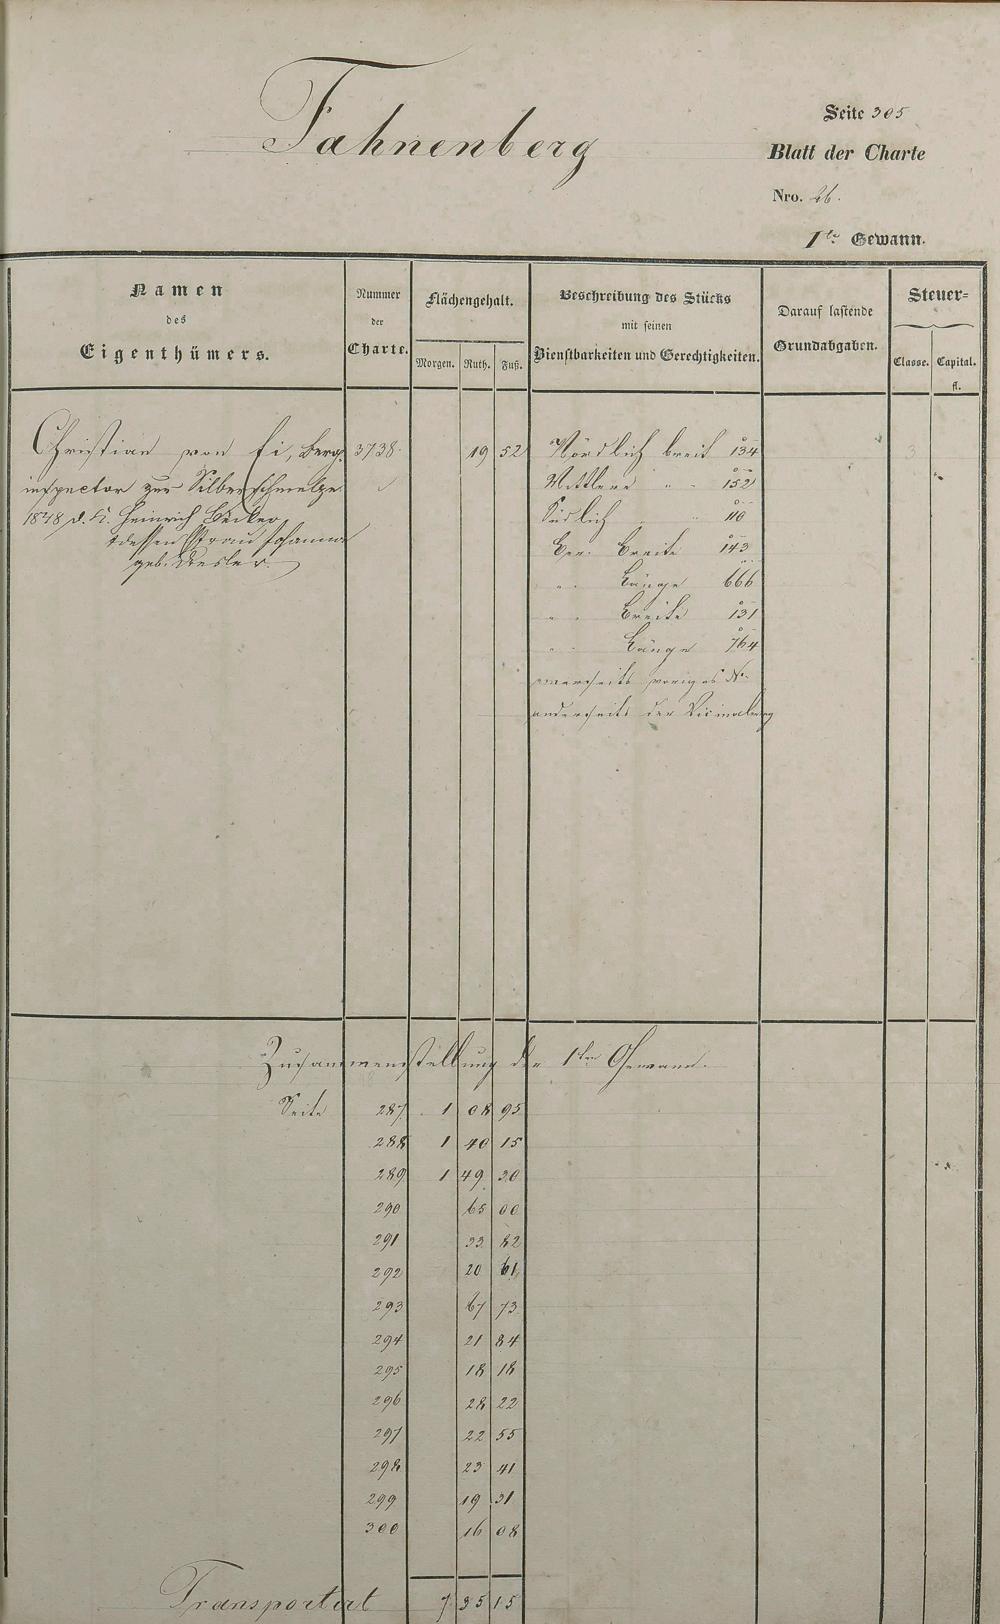 Fahnenberg
Seite 305
Blatt der Charte
Nro. 26.
1te Gewann.
Namen
des
Eigenthümers.
Nummer
der
Charte.
Flächengehalt.
Morgen. Ruth. Fuß.
Beschreibung des Stücks
mit seinen
Dienstbarkeiten und Gerechtigkeiten.
Darauf lastende
Grundabgaben.
Steuer-
Classe. Capital.
fl.
Christian von Berg- 3738. 19 52 Nördlich breit 134
inspector zur Silberschmelze Mittlere " " 152
1848 d. H. Heinrich Becker Südlich " " 110
dessen Frau Johanna Ber. Breite 143
geb. " Länge 666
" " Breite 131
" " Länge 764
einerseits voriges No.
anderseits der
Zusammenstellung der 1ten Gewann.
Seite 287 1 08 95
288 1 40 15
289 1 49 30
290 65 00
291 33 82
292 20 61
293 67 73
294 21 84
295 18 18
296 28 22
297 22 55
298 23 41
299 19 31
300 16 08
Transportirt 7 35 15